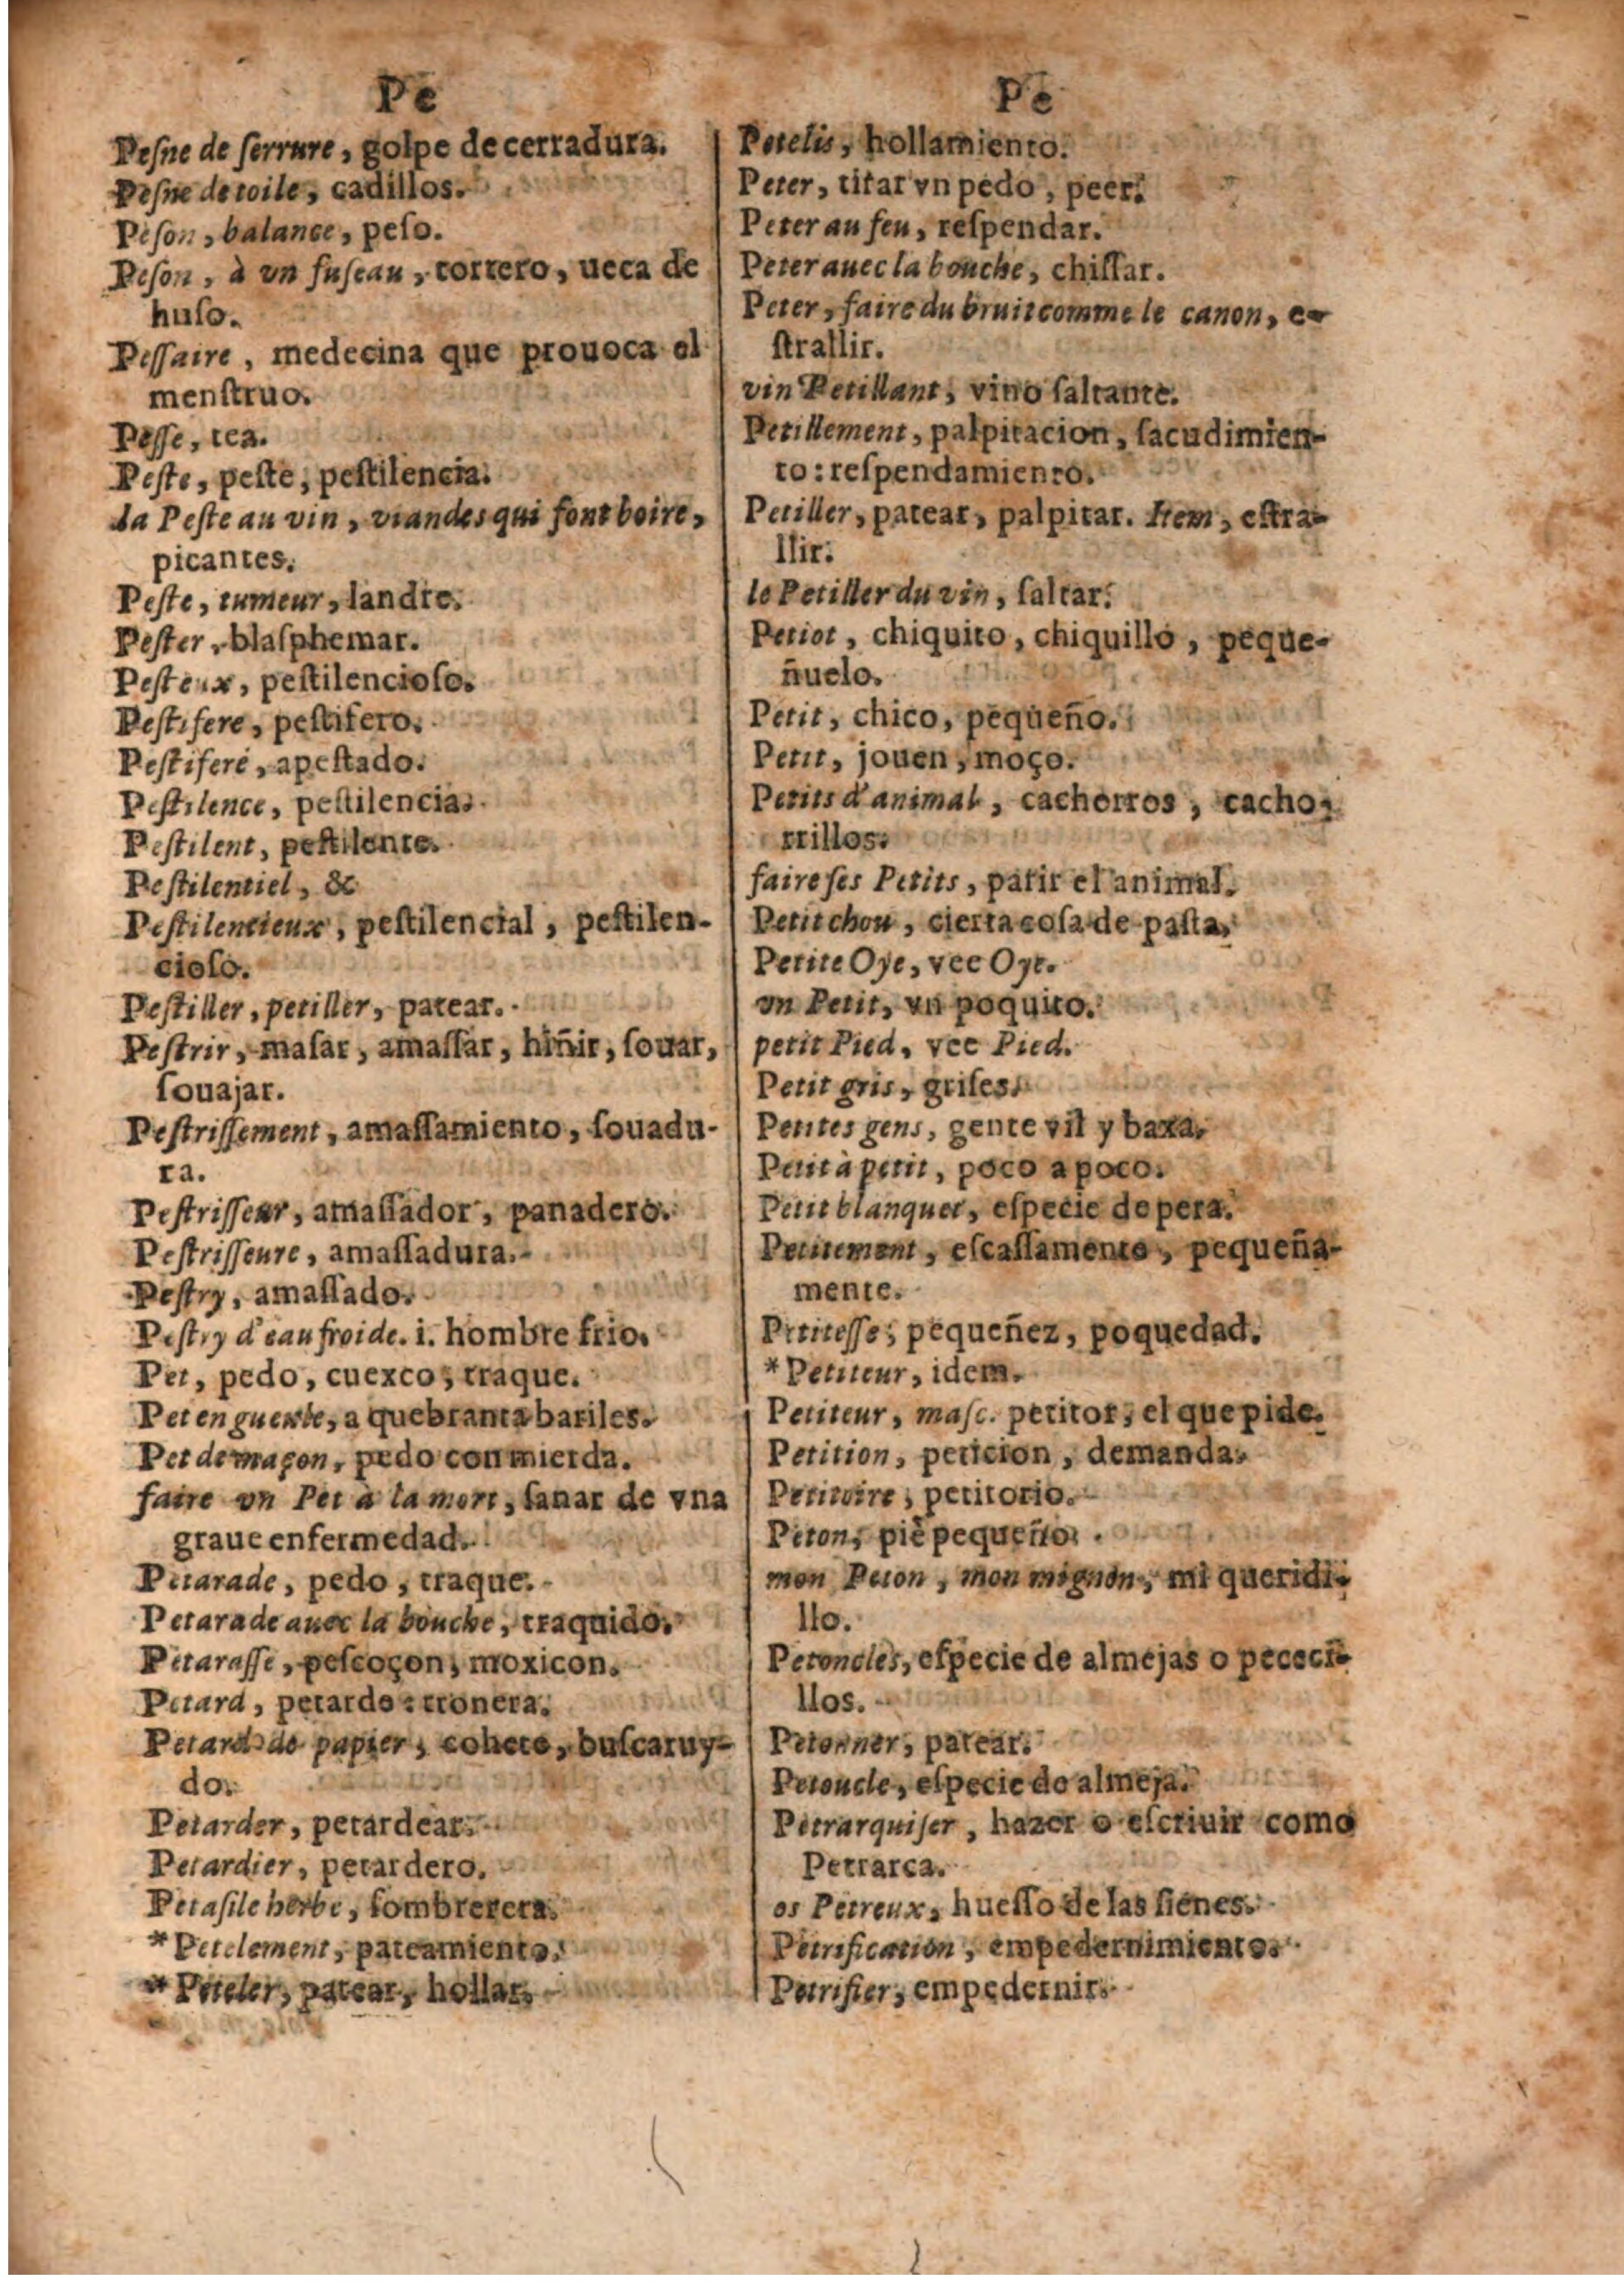 Pe
Peſne de ſerrure, golpe de cerradura.
Peſne de toile, cadillos.
Peſon, balance, peſo.
Peſon, à vn fuſeau, tortero, ueca de
huſo.
Peſſaire, medecina que prouoca el
menſtruo.
Peſſe, tea.
Peſte, peſte, peſtilencia.
la Peſte au vin, viandes qui font boire,
picantes.
Peſte, tumeur, landre.
Peſter, blaſphemar.
Peſteux, peſtilencioſo.
Peſtifere, peſtifero.
Peſtiferé, apeſtado.
Peſtilence, peſtilencia.
Peſtilent, peſtilente.
Peſtilentiel, &
Peſtilentieux, peſtilencial, peſtilen-
cioſo.
Peſtiller, petiller, patear.
Peſtrir, maſar, amaſſar, hiñir, ſouar,
ſouajar.
Peſtriſſement, amaſſamiento, ſouadu-
ra.
Peſtriſſeur, amaſſador, panadero.
Peſtriſſeure, amaſſadura.
Peſtry, amaſſado.
Peſtry d'eau froide. i. hombre frio.
Pet, pedo, cuexco, traque.
Pet en gueule, a quebranta bariles.
Pet de maçon, pedo con mierda.
faire vn Pet à la mort, ſanar de vna
graue enfermedad.
Petarade, pedo, traque.
Petarade auec la bouche, traquido.
Petaraſſe, peſcoçon, moxicon.
Petard, petardo: tronera.
Petard de papier, cohete, buſcaruy-
do.
Petarder, petardear.
Petardier, petardero.
Petaſile herbe, ſombrerera.
*Petelement, pateamiento.
*Peteler, patear, hollar.
Pe
Petelis, hollamiento.
Peter, titar vn pedo, peer.
Peter au feu, reſpendar.
Peter auec la bouche, chiſſar.
Peter, faire du bruit comme le canon, e-
ſtrallir.
vin Petillant, vino ſaltante.
Petillement, palpitacion, ſacudimien-
to: reſpendamiento.
Petiller, patear, palpitar. Item, eſtra-
llir.
le Petiller du vin, ſaltar.
Petiot, chiquito, chiquillo, peque-
ñuelo.
Petit, chico, pequeño.
Petit, jouen, moço.
Petits d'animal, cachorros, cacho-
rrillos.
faire ſes Petits, parir el animal.
Petit chou, cierta coſa de paſta.
Petite Oye, vee Oye.
vn Petit, vn poquito.
petit Pied, vee Pied.
Petit gris, griſes.
Petites gens, gente vil y baxa.
Petit à petit, poco a poco.
Petit blanquet, eſpecie de pera.
Petitement, eſcaſſamente, pequeña-
mente.
Petiteſſe, pequeñez, poquedad.
*Petiteur, idem.
Petiteur, maſc. petitor, el que pide.
Petition, peticion, demanda.
Petitoire, petitorio.
Peton, piè pequeño.
mon Peton, mon mignon, mi queridi-
llo.
Petoncles, eſpecie de almejas o pececi-
llos.
Petonner, patear.
Petoucle, eſpecie de almeja.
Petrarquiſer, hazer o eſcriuir como
Petrarca.
os Petreux, hueſſo de las ſienes.
Petrification, empedernimiento.
Petrifier, empedernir.